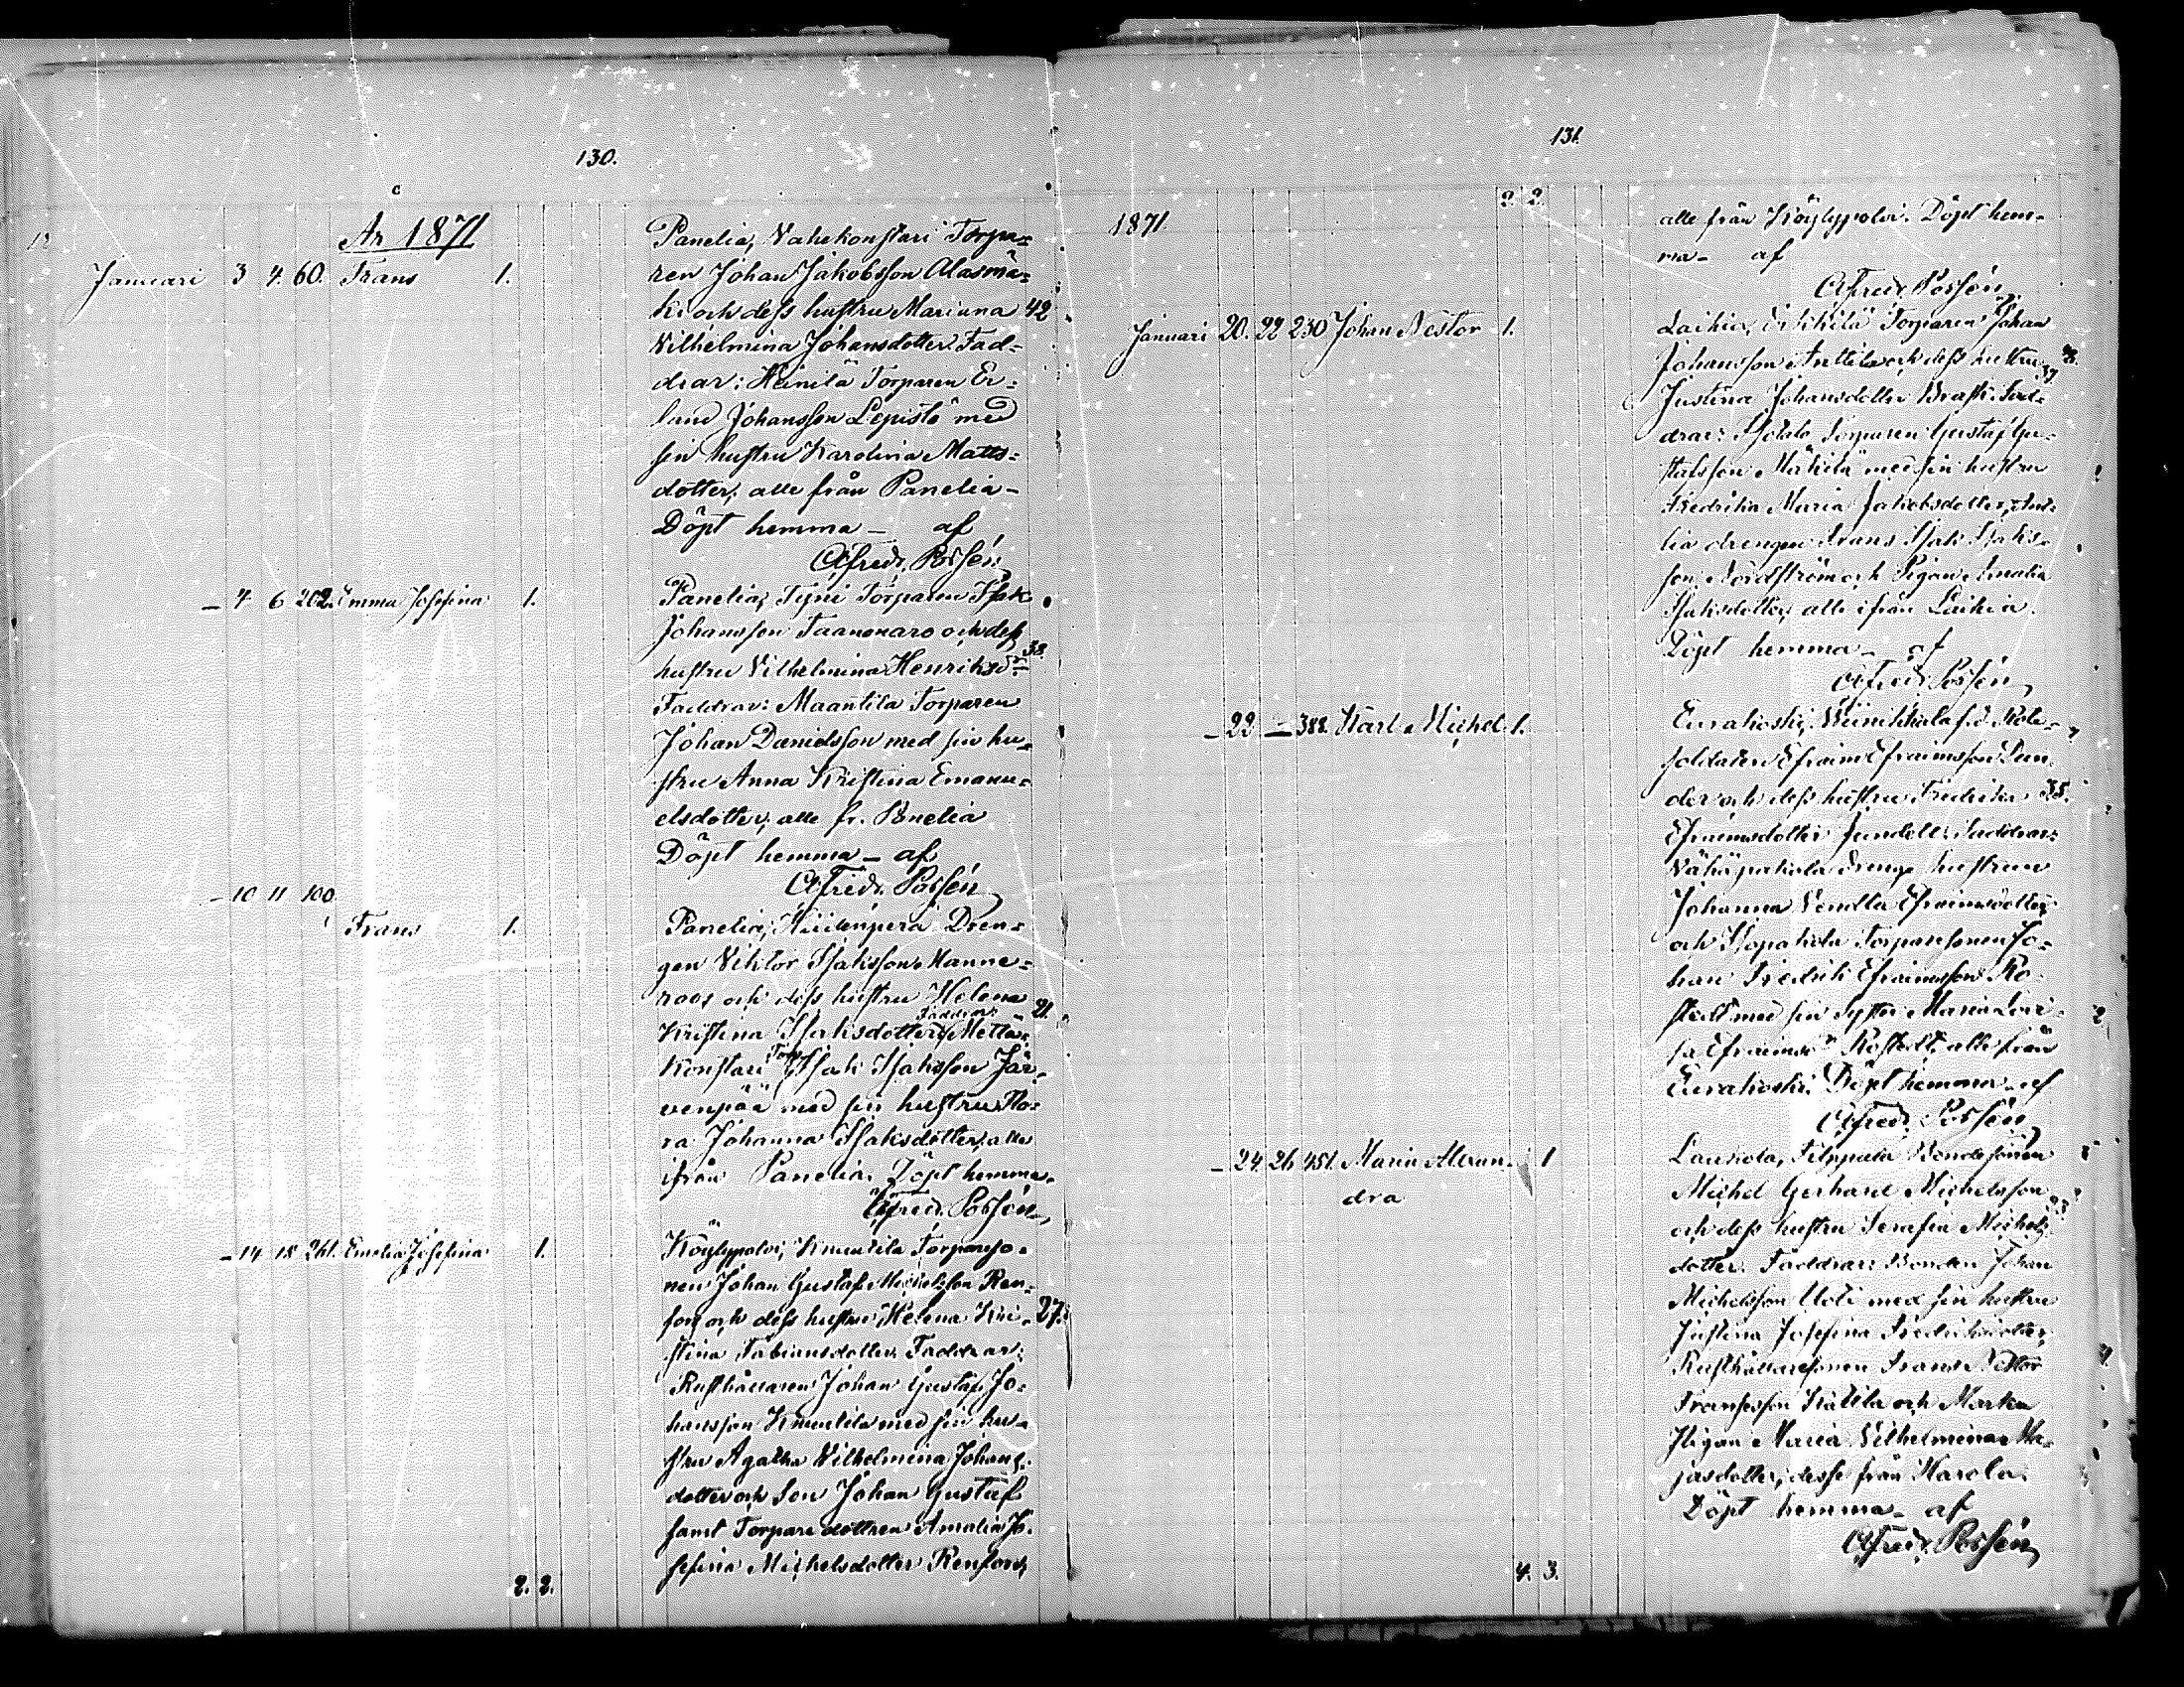 130.
År 1871
Januari 3 4. 60. Frans 1.
Panelia, Vahekonstari Torpa=
ren Johan Jakobsson Alasmä=
ki och dess hustru Marianna 42
Vilhelmina Johansdotter. Fad=
drar: Heinilä Torparen Er=
land Johansson Lepistö med
sin hustru Karolina Matts=
dotter, alle från Panelia –
Döpt hemma – af
Alfred. Possén
– 4 6 202. Emma Josefina 1.
Panelia, Tyni Torparen Isak
Johansson Taanonaro och dess
hustru Vilhelmina Henriksdr 38.
Faddrar: Maantila Torparen
Johan Danielsson med sin hu=
stru Anna Kristina Emanu=
elsdotter, alle fr. Panelia
Döpt hemma – af
Alfred. Possén
– 10 11 100.
Frans 1.
Panelia, Hiidenperä Dren=
gen Viktor Isaksson Manne=
roos och dess hustru Helena 21.
Kristina Isaksdotter, Faddrar Mettä=
Konstari Torp. Isak Isaksson Jär=
venpää med sin hustru Flo=
ra Johanna Isaksdotter, alle
ifrån Panelia. Döpt hemma.
Alfred. Possén
– 14 18 261. Emelia Josefina 1.
Köylypolvi, Knuutila Torpareso=
nen Johan Gustaf Michelsson Ren=
fors och dess hustru Helena Kri= 27.
stina Fabiansdotter. Faddrar:
Rusthållaren Johan Gustaf Jo=
hansson Knuutila med sin hu=
stru Agatha Vilhelmina Johans=
dotter och Son Johan Gustaf
samt Torpare dottren Amalia Jo=
sefina Michelsdotter Renfors,
2. 2.
131.
2. 2.
1871.
alle från Köylypolvi. Döpt hem=
ma – af
Alfred. Possén
Januari 20. 22 230 Johan Nestor 1.
Laihia, Erkkilä Torparen Johan
Johansson Anttila och dess hustru
Justina Johansdotter Brask. Fad=
drar: Torparen Gustaf Gu=
stafsson Mäkilä med sin hustru
Fredrika Maria Jakobsdotter,
drengen Frans Isak Isaks=
son Nordström och Pigan Amalia
Isaksdotter, alle ifrån Laihia.
Döpt hemma – af
Alfred. Possén
– 22 – 388. Karl Michel 1.
Eurakoski, f.d. Rote=
soldaten Efraim Efraimsson Lun=
der och dess hustru Fredrika 35.
Efraimsdotter Jundell. Faddrar:
Vähäpakola Drenge hustrun
Johanna Vendla Efraimsdotter
och Isopakola Torparesonen Jo=
han Fredrik Efraimsson Ro=
stedt med sin Syster Maria Lovi=
sa Efraimsdr Rostedt, alle från
Eurakoski. Döpt hemma – af
Alfred. Possén
– 24. 26 451. Maria Alexan= 1
dra
Laukola, Bondesonen
Michel Gerhard Michelsson
och dess hustru Serafia Michels=
dotter. Faddrar: Bonden Johan
Michelsson Uoti med sin hustru
Justina Josefina Fredriksdotter,
Rusthållaresonen Frans Nestor
Fransson Kallila och
Pigan Maria Vilhelmina Ma=
jasdotter, desse från Harola.
Döpt hemma – af
Alfred. Possén
4. 3.